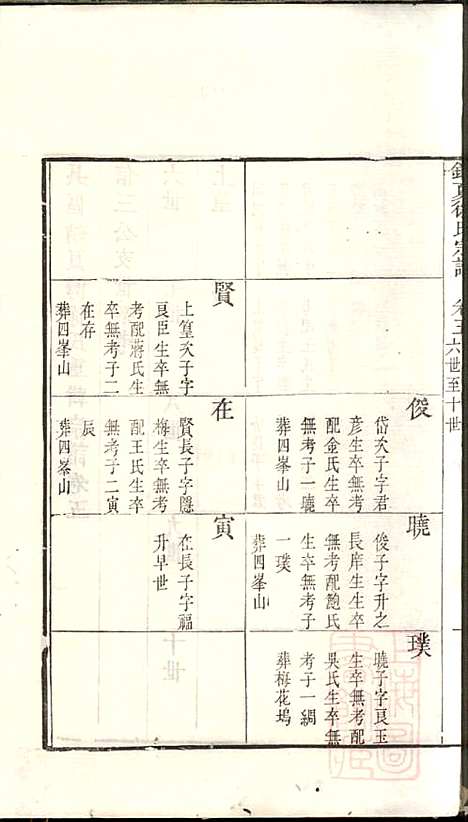 徐氏宗譜 卷三 六世至十世
俊
岱次子字君
彥生卒無考
配金氏生卒
無考子一曉
葬四峯山
曉
俊子字升之
長庠生生卒
無考配趙氏
生卒無考子
一璞
葬四峯山
璞
曉子字良玉
生卒無考配
吳氏生卒無
考子一綢
葬梅花塢
賢
上篁次子字
良臣生卒無
考配蔣氏生
卒無考子二
在存
葬四峯山
在
賢長子字隱
梅生卒無考
配王氏生卒
無考子二寅
辰
葬四峯山
寅
在長子字福
升早世